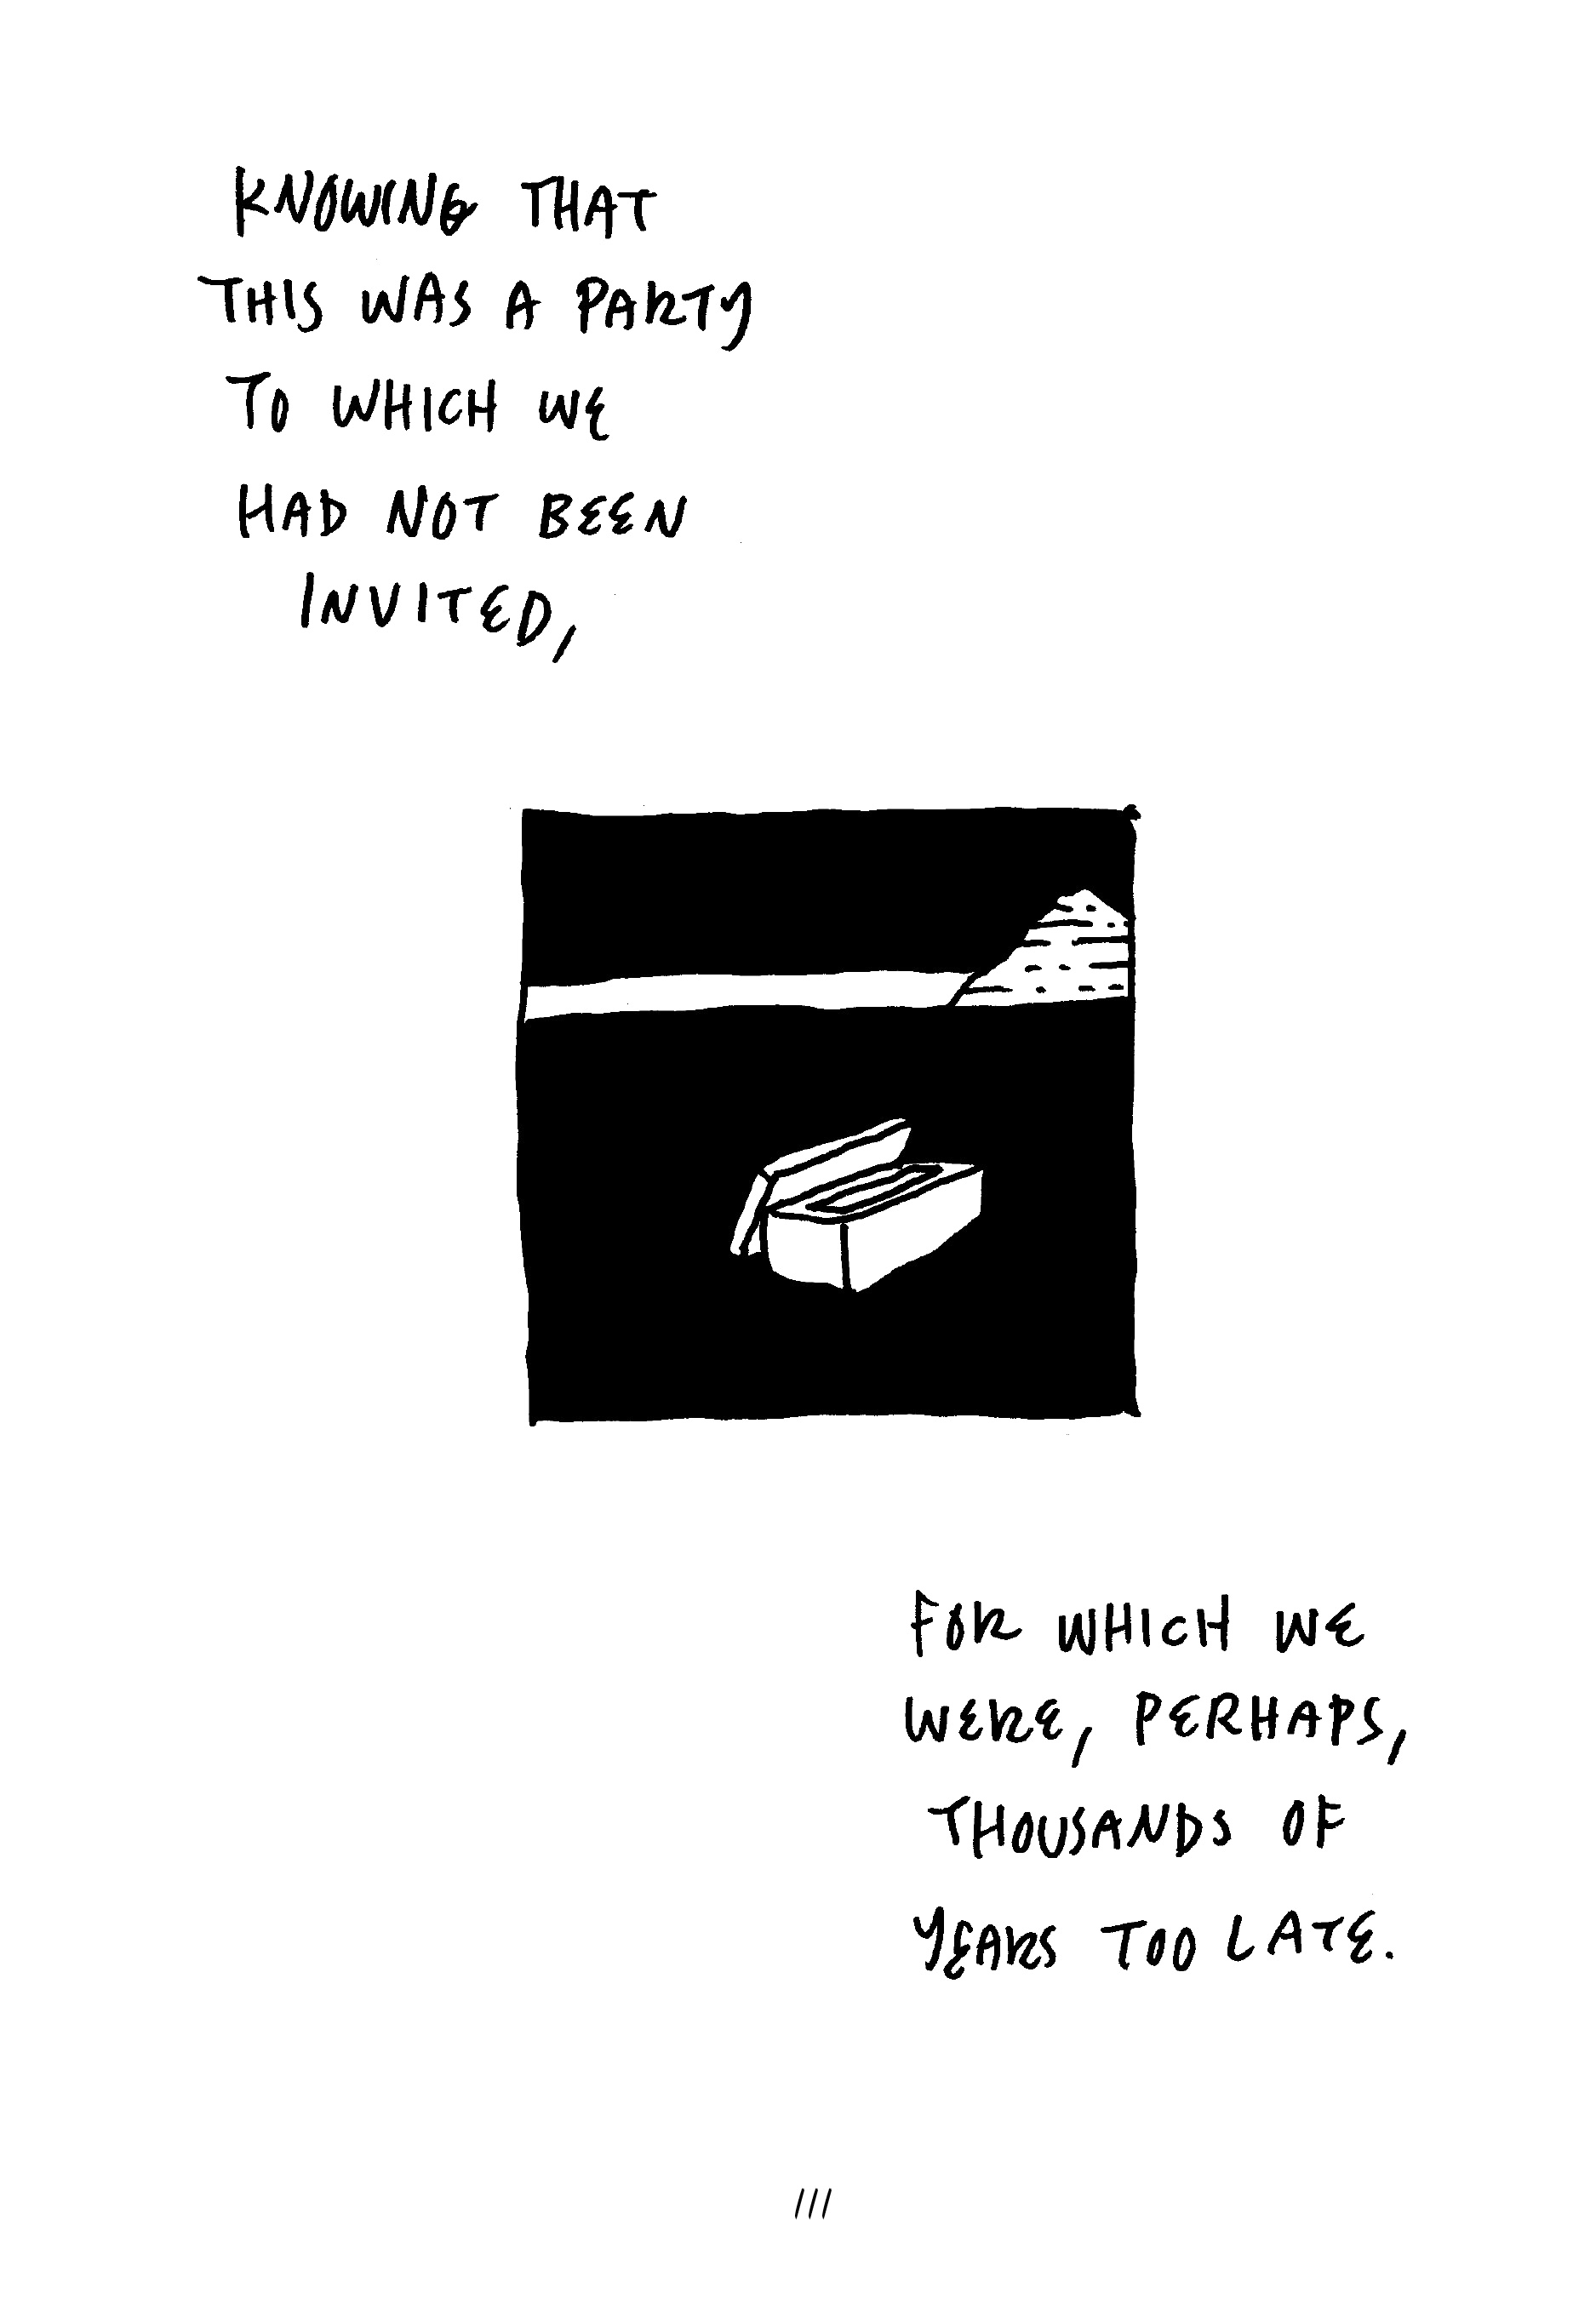 KNOWING THAT
THIS WAS A PARTY
TO WHICH WE
HAD NOT BEEN
INVITED,
FOR WHICH WE
WERE, PERHAPS,
THOUSANDS OF
YEARS TOO LATE.
111